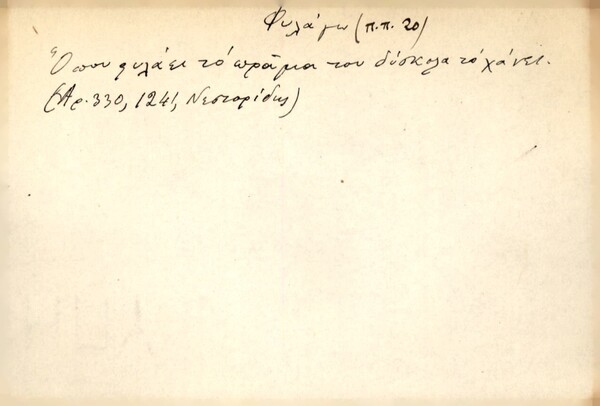 Φυλάγω (π.π. 20)
Όπου φυλάει τό πρᾶμα του δύσκολα τό χάνει.
(Αρ. 330, 124, Νεστορίδης)